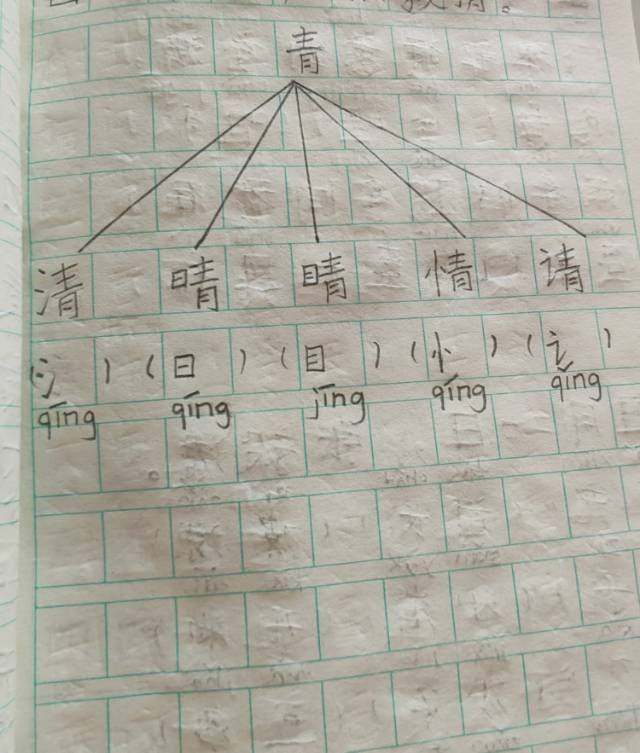 青
清 晴 睛 情 请
(氵) (日) (目) (忄) (讠)
qīng qīng jīng qīng qīng